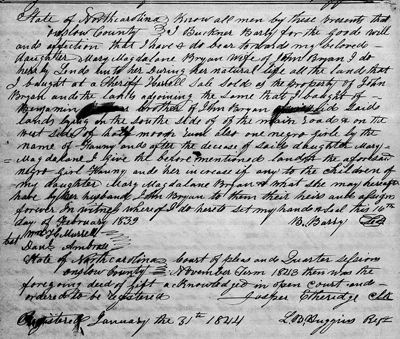 State of Northcarolina Know all men by these presents that
Onslow County I Buckner Barry for the good will
and affection that I have & do bear towards my beloved
daughter Mary Magdalane Bryan wife of John Bryan I do
hereby Lend unto her During her natural life all the land that
I bought at a Sheriff Sale Sold as the Property of John
Bryan and the lands adjoining the same that I bought of
Benjamin brother of John Bryan said
lands lying on the South Side of the main road & on the
West side of half moon also one negro girle by the
name of Fanny and after the decease of said daughter Mary
Magdelane I give the before mentioned land & the aforesaid
negro Girl Fanny and her increase if any to the children of
my daughter Mary Magdalane Bryan & what she may hereafter
have by her husband John Bryan to them their heirs and assigns
forever In witness whereof I do hereto set my hand & Seal this 16th
day of February 1839 B. Barry
Murrell
Danl Ambrose
State of Northcarolina Court of pleas and Quarter session
Onslow County November Term 1843 then was the
foregoing deed of gift acknowledged in open court and
ordered to be registered Jasper Etheridge Clk
Registered January the 31th 1844 L.B. Huggins Regr